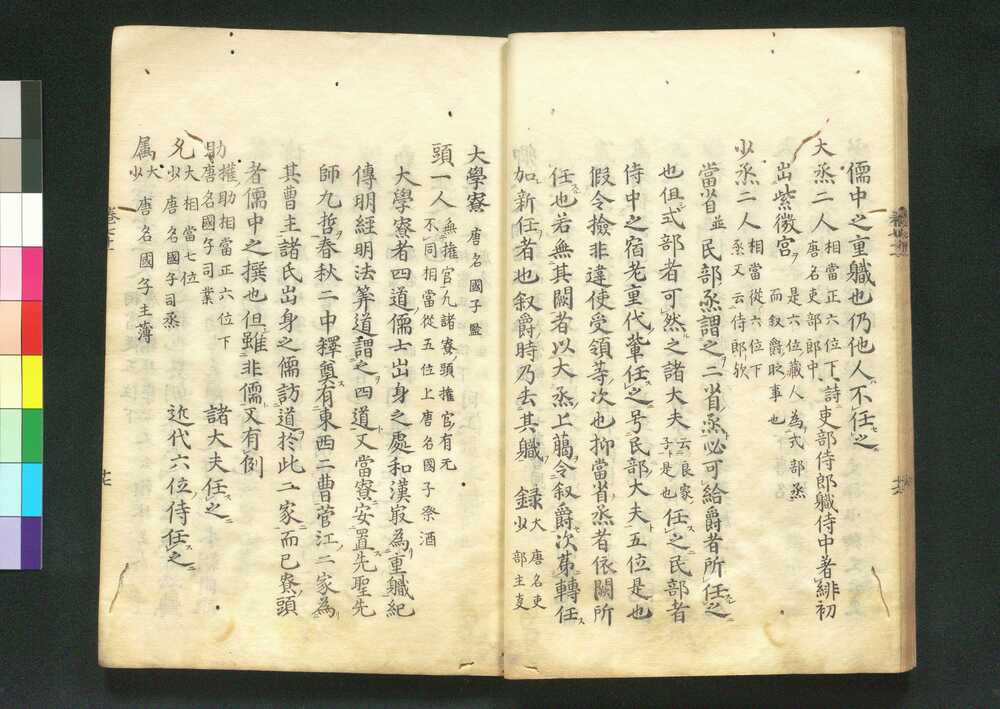 儒中之重軄也仍他人不任之
大丞二人 相當正六位下 唐名吏部郎中 詩吏部侍郎軄侍中著緋初
出紫微宮 是六位藏人為式部丞 而叙爵貶事也
少丞二人 相當從六位下 丞又云侍郎歟
當省並民部丞謂之二省丞必可給爵者所任之
也但式部者可然之諸大夫 云良家子是也 任之民部者
侍中之宿老重代輩任之号民部大夫五位是也
假令撿非違使受領等次也抑當省丞者依闕所
任也若無其闕者以大丞上﨟令叙爵次第轉任
加新任者也叙爵時乃去其軄 録 大少 唐名吏部主事
大學寮 唐名國子監
頭一人 無權官凡諸寮頭權官有无 不同相當從五位上唐名國子祭酒
大學寮者四道儒士出身之處和漢㝡為重軄紀
傳明經明法筭道謂之四道又當寮安置先聖先
師九哲春秋二中釋奠有東西二曹菅江二家為
其曹主諸氏出身之儒訪道於此二家而已寮頭
者儒中之撰也但雖非儒又有例
助 權助相當正六位下 唐名國子司業 諸大夫任之
允 大相當七位 少唐名國子司丞 近代六位侍任之
属 大少 唐名國子主簿